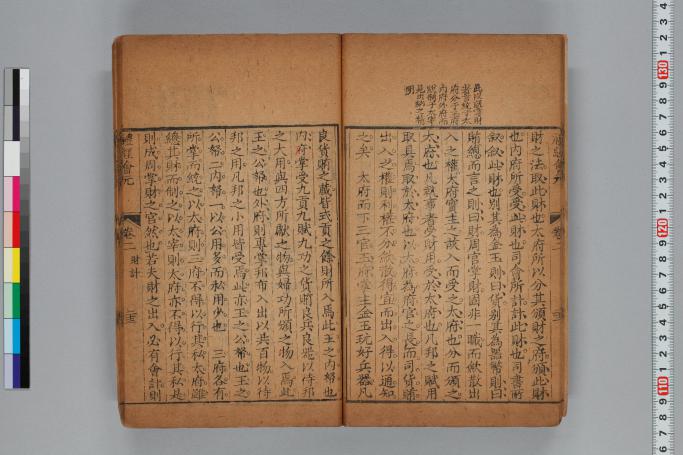 財之法取此財也太府所以分其頒財之府頒此財
也内府所受受此財也司會所計計此財也司書所
敘敘此財也別其為金玉則曰貨別其為器幣則曰
賄總而言之則曰財周官掌財固非一職而斂散出
入之權太府實主之故入而受之太府也分而頒之
太府也凡執事者受財用受於太府也凡邦之賦用
取具焉取於太府也以太府為府官之長而司貨賄
出入之權則利權不分故散得宜而出入得以通知
之矣 太府而下三官玉府掌王金玉玩好兵器凡
良貨賄之藏皆式貢之餘財所入焉此王之内帑也
内府掌受九貢九賦九功之貨賄良兵良器以待邦
之大用與四方所獻之物與婦功所頒之物入焉此
王之公帑也外府則專掌邦布入出以共百物以待
邦之用凡邦之小用皆受焉此亦王之公帑也王之
公帑二内帑一以公用多而私用少也 三府各有
所掌而統之以太府則三府不得以行其私太府雖
總其財而制之以太宰則太府亦不得以行其私是
則成周掌財之官然也若夫財之出入必有會計則
禮經會元
卷二
財計
二十三